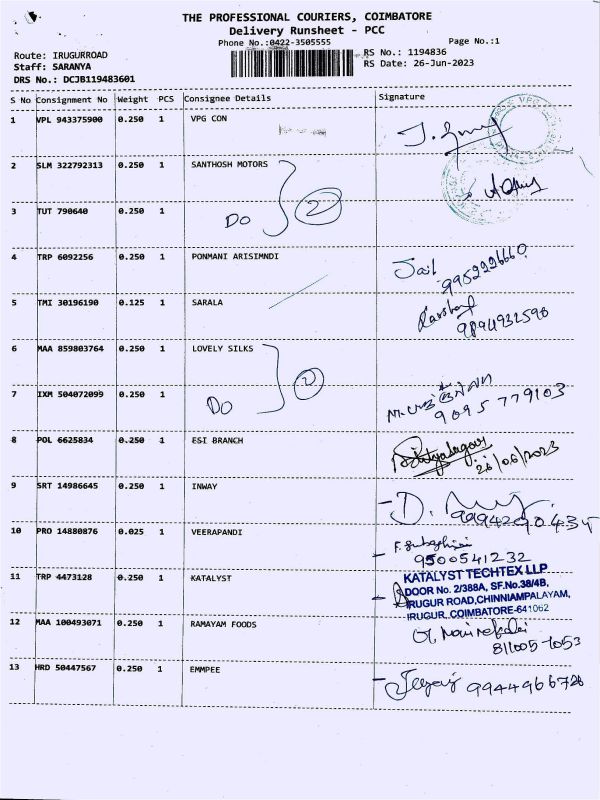 THE PROFESSIONAL COURIERS, COIMBATORE
Delivery Runsheet - PCC
Phone No.:0422-3505555 Page No.:1
Route: IRUGURROAD RS No.: 1194836
Staff: SARANYA RS Date: 26-Jun-2023
DRS No.: DCJB119483601
S No Consignment No Weight PCS Consignee Details Signature
1 VPL 943375900 0.250 1 VPG CON
2 SLM 322792313 0.250 1 SANTHOSH MOTORS
2
3 TUT 790640 0.250 1 Do
4 TRP 6092256 0.250 1 PONMANI ARISIMNDI
9952226660
5 TMI 30196190 0.125 1 SARALA
9894932590
6 MAA 859803764 0.250 1 LOVELY SILKS
2
7 IXM 504072099 0.250 1 Do
9095779103
8 POL 6625834 0.250 1 ESI BRANCH
26/06/2023
9 SRT 14986645 0.250 1 INWAY
9994290435
10 PRO 14880876 0.025 1 VEERAPANDI
9500541232
11 TRP 4473128 0.250 1 KATALYST KATALYST TECHTEX LLP
DOOR No. 2/388A, SF.No.38/4B,
IRUGUR ROAD,CHINNIAMPALAYAM,
IRUGUR, COIMBATORE-641062
12 MAA 100493071 0.250 1 RAMAYAM FOODS
13 HRD 50447567 0.250 1 EMMPEE 9944966726